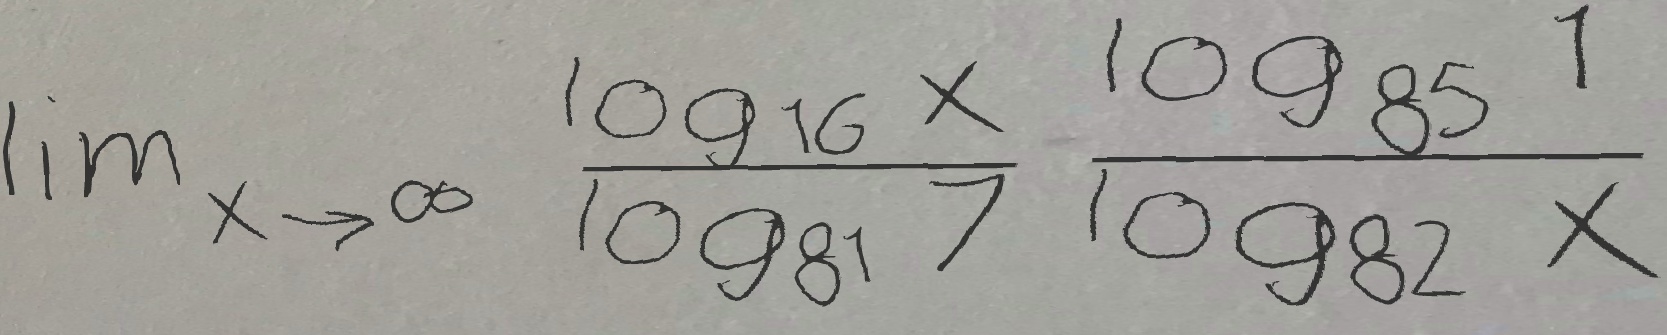 lim x→∞ \frac{log_{16} x}{log_{81} 7} \frac{log_{85} 1}{log_{82} x}